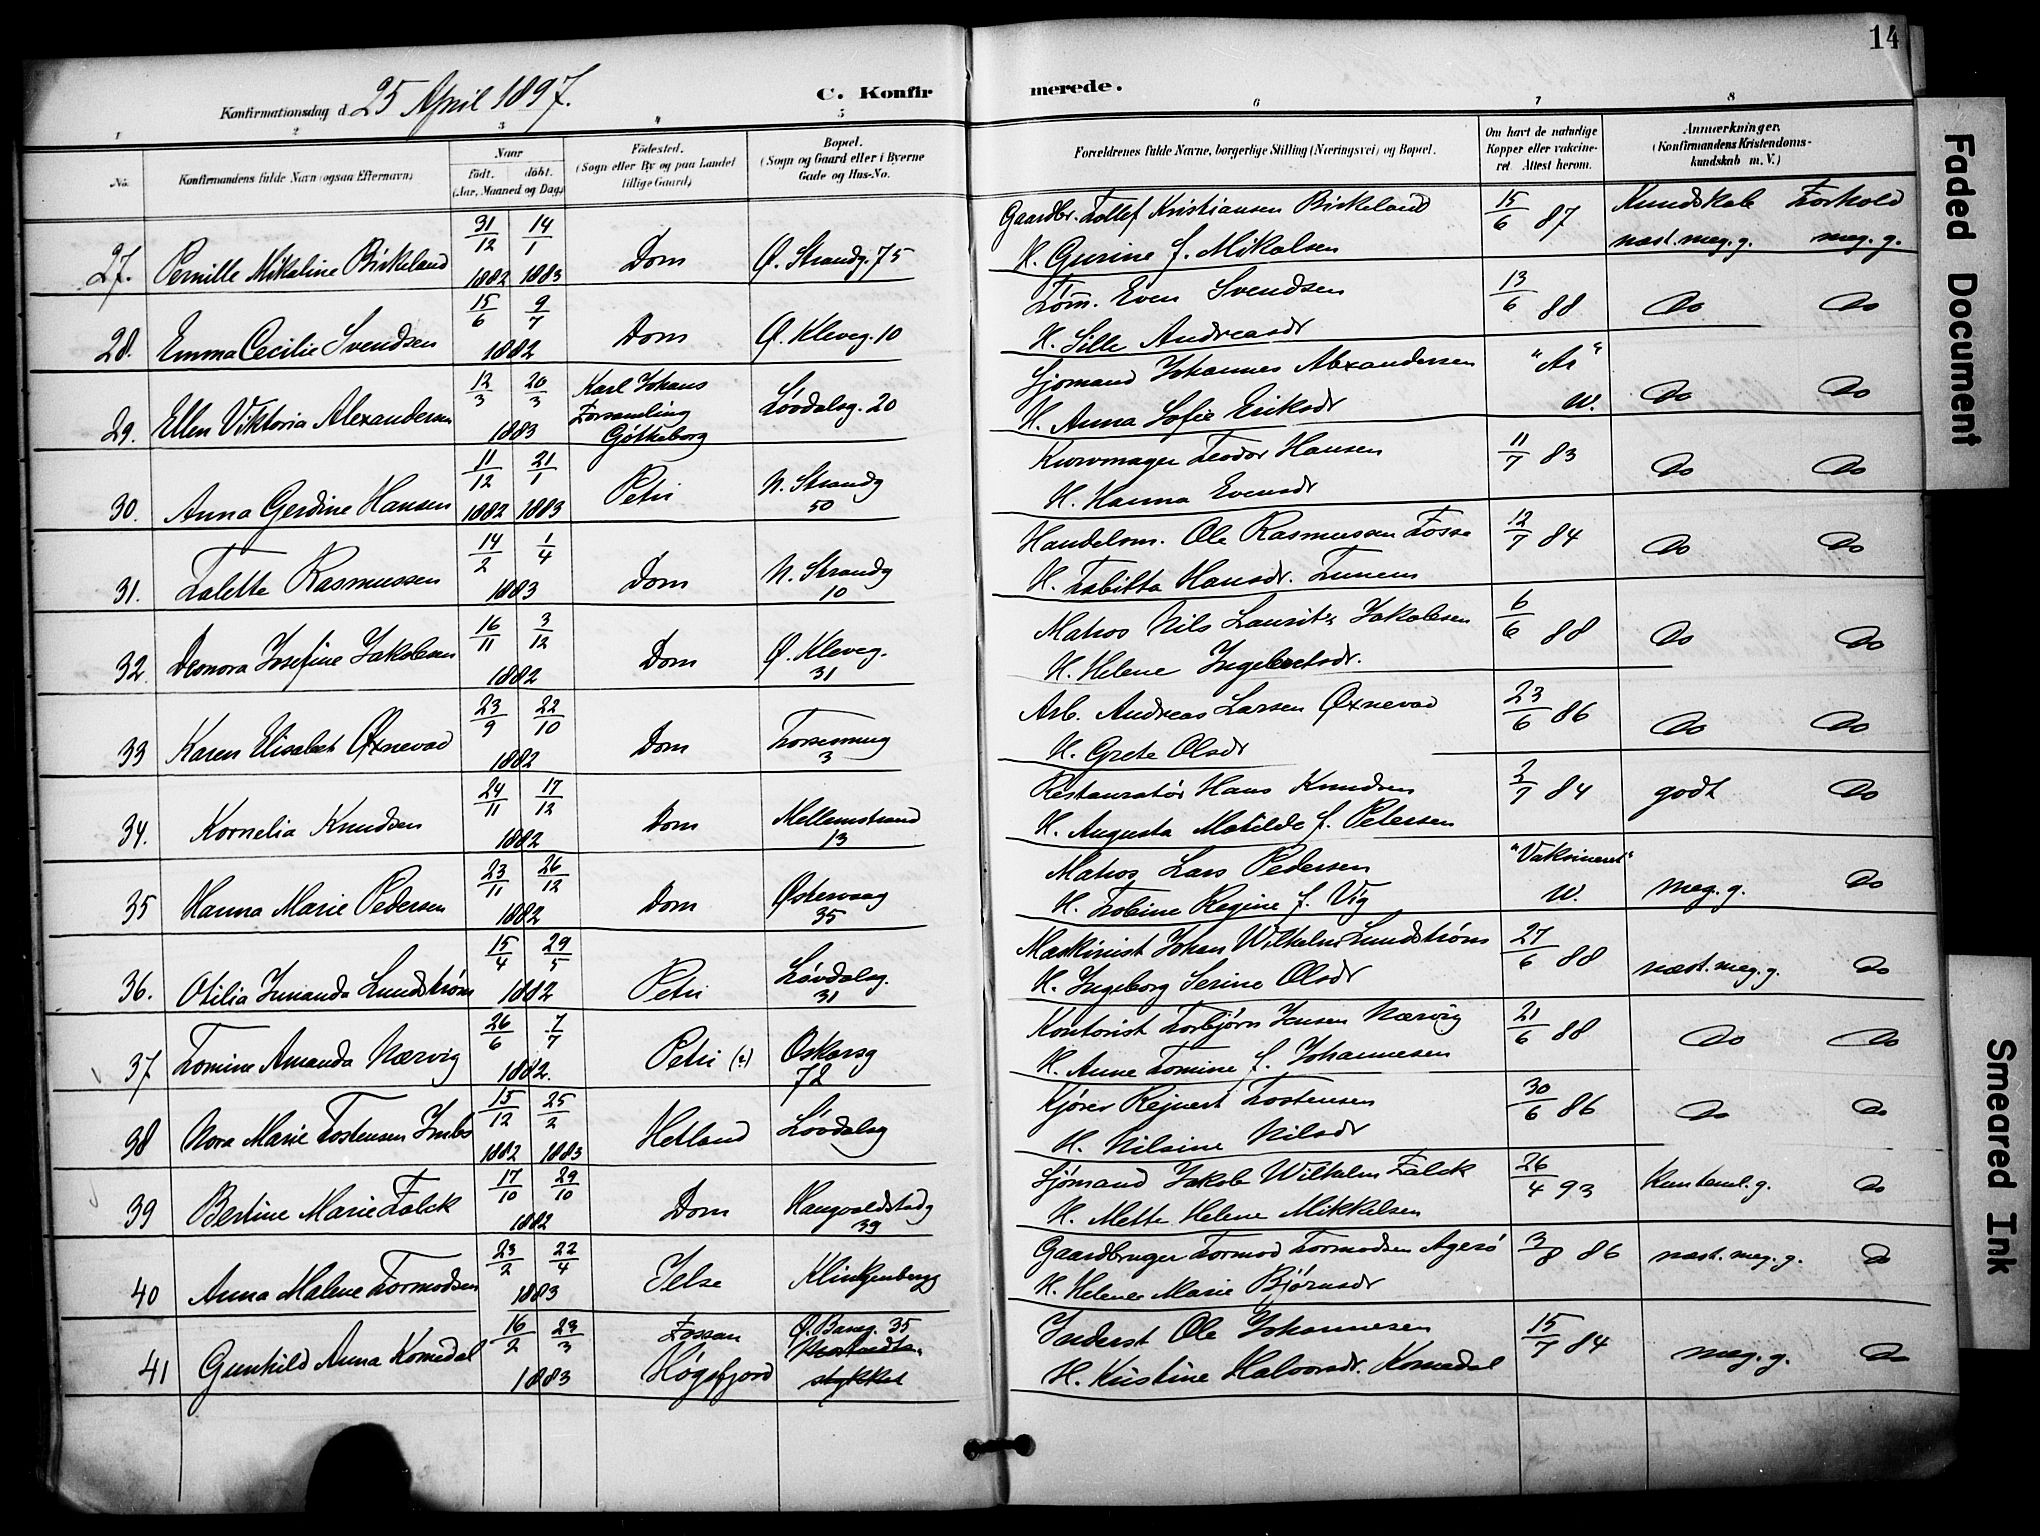 14
Konfirmationsdag d. 25 April 1897.
C. Konfirmerede.
1 2 3 4 5 6 7 8
No. Konfirmandens fulde Navn (ogsaa Efternavn) Naar født. døbt. (Aar, Maaned og Dag) Fødested. (Sogn eller By og paa Landet tillige Gaard) Bopæl. (Sogn og Gaard eller i Byerne Gade og Hus-No. Forældrenes fulde Navne, borgerlige Stilling (Næringsvei) og Bopæl. Om havt de naturlige Kopper eller vakcineret. Attest herom. Anmærkninger. (Konfirmandens Kristendomskundskab m. V.)
27. Pernille Mikaline Birkeland 31/12 1882 14/1 1883 Dom Ø. Strandg. 75 Gaardbr. Tollef Kristiansen Birkeland 15/6 87 Kundskab Forhold
H. Gurine f. Mikalsen næst. meg. g. meg. g.
28. Emma Cecilie Svendsen 15/6 9/7 1882 Dom Ø. Kleveg. 10 Tøm. Even Svendsen 13/6 88 Do Do
H. Sille Andreasdr
29. Ellen Viktoria Alexandersen 12/3 20/3 1883 Karl Johans Forsamling Gøtheborg Løvdalsg. 20 Sjømand Johannes Alexandersen "Ar" W. Do Do
H. Anna Sofie Eriksdr
30. Anna Gerdine Hansen 11/12 1882 21/1 1883 Petri N. Strandg 50 Kurvmager Teodor Hansen 11/7 83 Do Do
H. Hanna Evensdr
31. Talette Rasmussen 14/2 1/4 1883 Dom N. Strandg 10 Handelsm. Ole Rasmussen Fosse 12/7 84 Do Do
H. Tabitta Hansdr.
32. Deonora Josefine Jakobsen 16/11 3/12 1882 Dom Ø. Kleveg. 31 Matros Nils Laurits Jakobsen 6/6 88 Do Do
H. Helene Ingebretsdr.
33 Karen Elisabet Øxnevad 23/9 22/10 1882 Dom 3 Arb. Andreas Larsen Øxnevad 23/6 86 Do Do
H. Grete Olsdr
34. Kornelia Knudsen 24/11 17/12 1882 Dom Mellemstrand 13 Restauratør Hans Knudsen 2/7 84 godt Do
H. Augusta Matilde f. Petersen
35 Hanna Marie Pedersen 23/11 26/12 1882 Dom Østervaag 35 Matros Lars Pedersen "Vaksineret" W. meg. g. Do
H. Tobine Regine f. Vig
36. Otilia Amanda Lundstrøm 15/4 29/5 1882 Petri Løvdalsg. 31 Maskinist Johan Wilhelm Lundstrøm 27/6 88 næst. meg. g. Do
H. Ingeborg Serine Olsdr
37 Tomine Amanda Nærvig 26/6 7/7 1882. Petri (?) Oskarsg 72 Kontorist Torbjørn Jensen Nærvig 21/6 88 Do Do
H. Anne Tomine f. Johannesen
38 Nora Marie Tostensen 15/12 1882 25/2 1883 Hetland Løvdalsg Kjører Rejnert Tostensen 30/6 86 Do Do
H. Nilsine Nilsdr
39 Bertine Marie Falck 17/10 29/10 1882 Dom Haugvaldstadg 39 Sjømand Jakob Wilhelm Falck 26/4 93 Do
H. Mette Helene Mikkelsen
40 Anna Malene Tormodsen 23/2 22/4 1883 Jelse Klinkenbergg Gaardbruger Tormod Tormodsen Agerø 3/8 86 næst. meg. g. Do
H. Helene Marie Bjørnsdr
41 Gunhild Anna Komedal 16/2 23/3 1883 Fossan Høgsfjord Ø. Baneg. 35 Inderst Ole Johannesen 15/7 84 meg. g. Do
H. Kristine Halvorsdr. Komedal
Faded Document
Smeared Ink